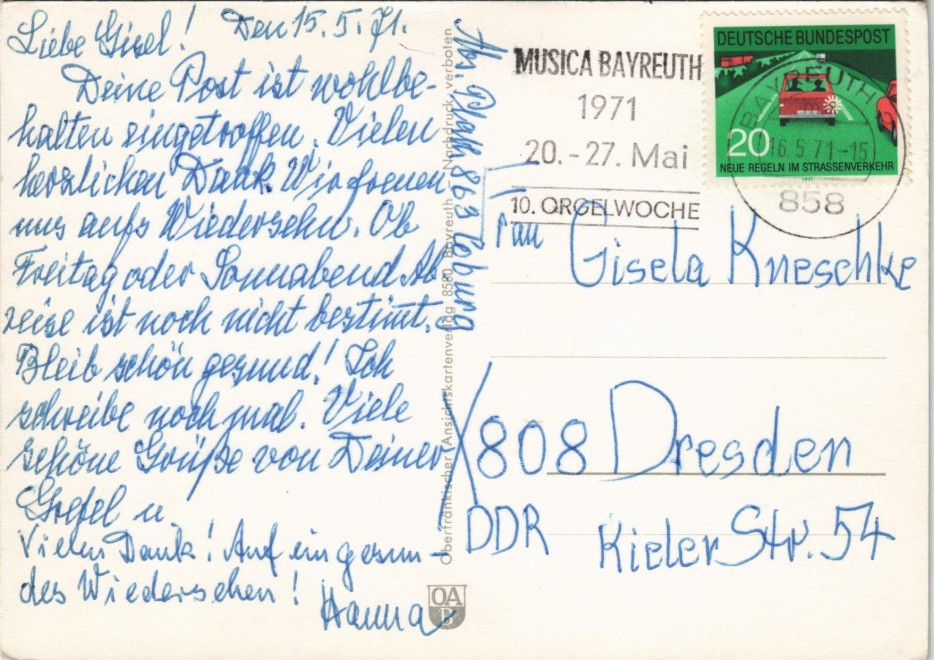 Liebe Gisel! Den 15.5.71.
Deine Post ist wohlbe-
halten eingetroffen. Vielen
herzlichen Dank. Wir freuen
uns aufs Wiedersehn. Ob
Freitag oder Sonnabend Ab
reise ist noch nicht bestimt.
Bleib schön gesund! Ich
schreibe noch mal. Viele
schöne Grüße von Deiner
Gretel u.
Vielen Dank! Auf ein gesun-
des Wiedersehen!
Hanna
863 Coburg
Oberfränkischer Ansichtskartenverlag 8580 Bayreuth Nachdruck verboten
OA
B
MUSICA BAYREUTH
1971
20.-27. Mai
10. ORGELWOCHE
DEUTSCHE BUNDESPOST
20
NEUE REGELN IM STRASSENVERKEHR
BAYREUTH
16.5.71-15
858
Frau
Gisela Kneschke
808 Dresden
DDR Kieler Str. 54